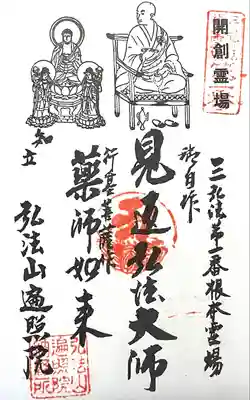 開創霊場
三弘法第一番根本霊場
御自作
見返弘法大師
行基菩薩作
薬師如来
知立
弘法山遍照院
弘法山
遍照院